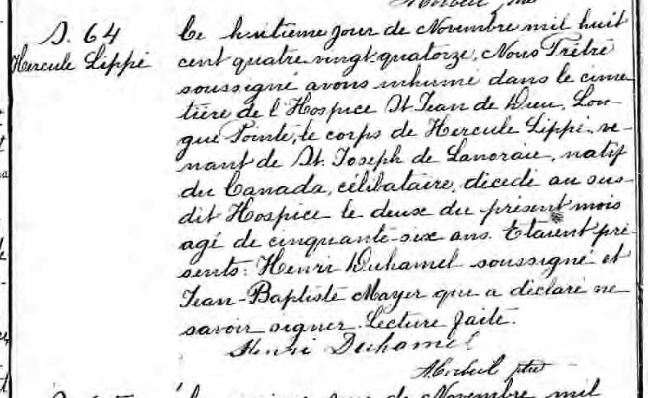 S. 64
Hercule Lippé
Le huitième jour de Novembre mil huit
cent quatre vingt-quatorze, Nous Prêtre
soussigné avons inhumé dans le cime
tière de l'Hospice St Jean de Dieu, Lon-
gue Pointe, le corps de Hercule Lippé, ve-
nant de St. Joseph de Lanoraie, natif
du Canada, célibataire, décédé au sus-
dit Hospice le deux du présent mois
agé de cinquante-six ans. Etaient pré-
sents: Henri Duhamel soussigné et
Jean-Baptiste Mayer qui a déclaré ne
savoir signer. Lecture faite.
Henri Duhamel
ptre
jour de Novembre mil